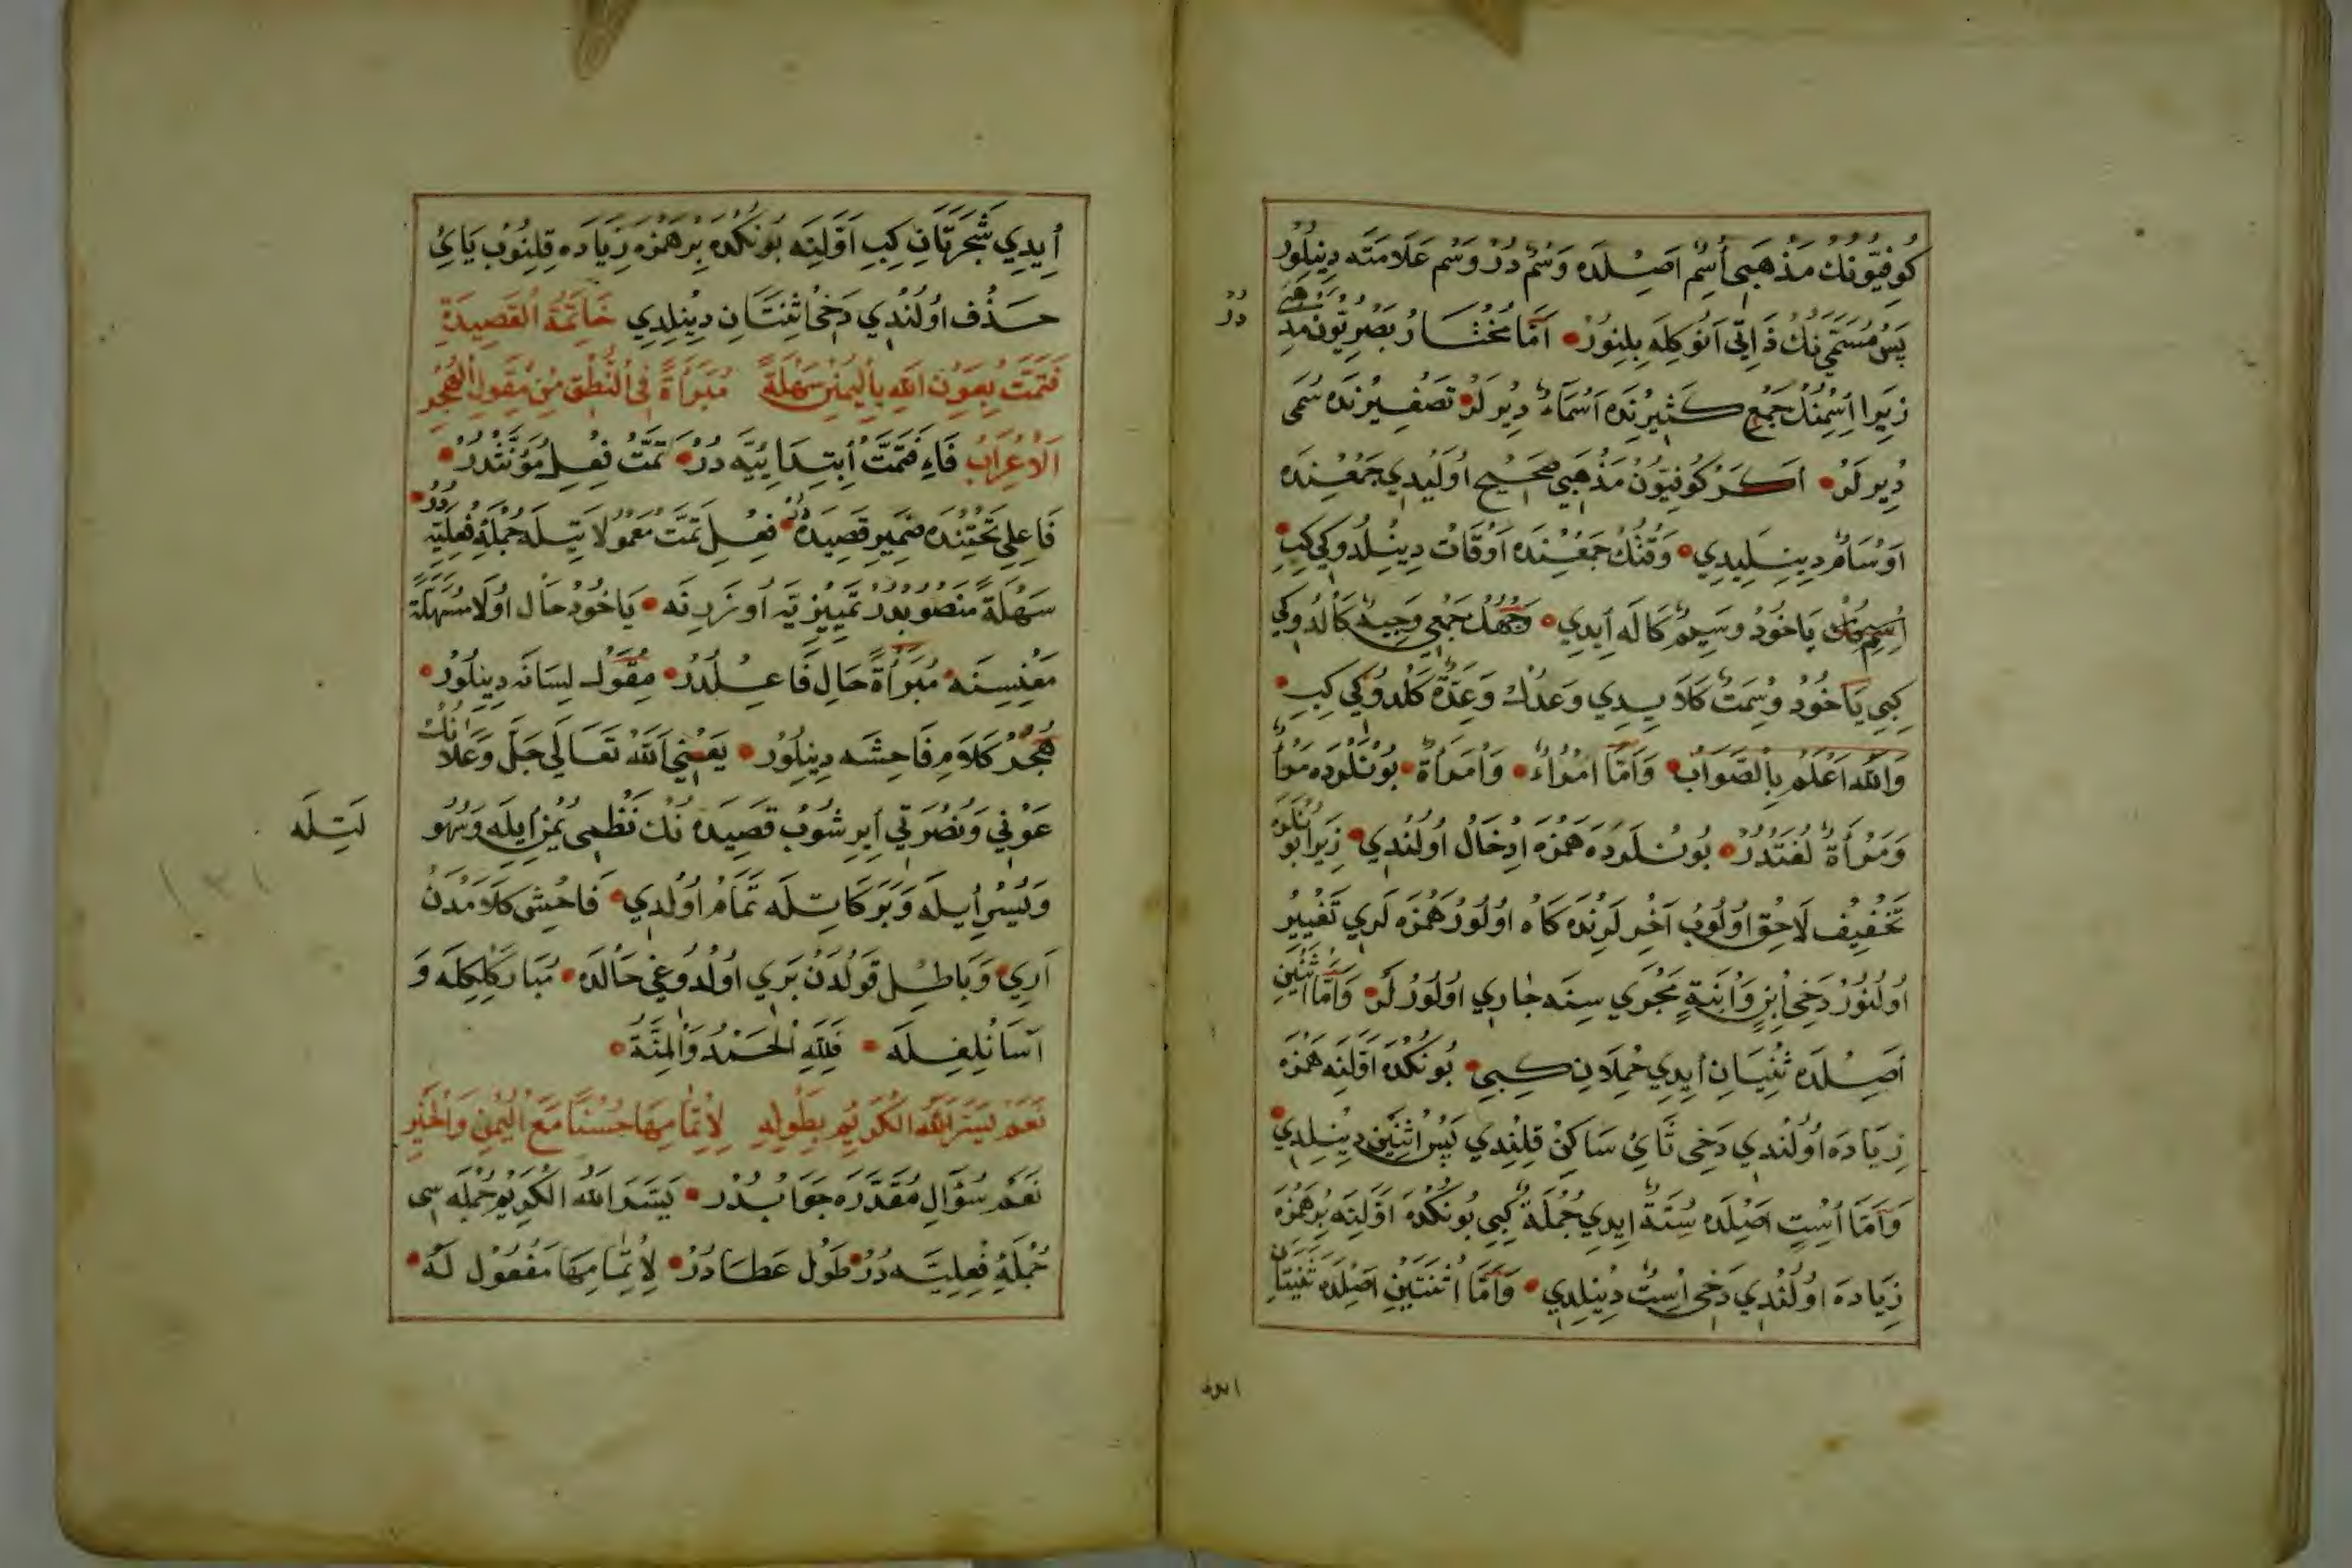 كُوفِيُّونُكْ مَذْهَبِى اُسِمْ اَصِلْدَه وَسْمْ دُرْ وَسْم عَلَامَتَه دِينِلُورْ
پَسْ مُسَمَّى نُكْ ذَاتِى اَنُوكِلَه بِلِنُورْ اَمَّا مُخْتَارُ بَصْرِيُّون مَذْهَبِى
دُرْ
زِيَرا اِسْمِنُكْ جَمْعِ كَثِيرِنْدَه اَسْمَاءٌ دِيرلَرْ تَصْغِيرِنْدَه سُمَى
دِيرلَرْ اَكَرْ كُوفِيُّونْ مَذْهَبِى صَحِيحْ اُولَيْدِي جَمْعِنْدَه
اَوْسَامٌ دِينِلَيدِي وَقْتُكْ جَمْعِنْدَه اَوْقَاتْ دِينِلْدُوكِي كِبِ
اِسِمْكْ يَاخُودْ وَسِيمٌ كَالَه اِيدِي وَجْهُكْ جَمْعِى وَجِيهٌ كَالْدُوكِي
كِبِي يَاخُودْ وِسْمَتْ كَلَا يِيدِي وَعْدُكْ وَعِدَةٌ كَلْدُوكِي كِبِ
وَاللّٰهُ اَعْلَمُ بِالصَّوَابْ وَاَمَّا امْرُاءٌ وَامْرَاَةٌ بُونْلَرْدَه مَرْأٌ
وَمَرْأَةٌ لُغَتْدُرْ بُونْلَرْدَه هَمْزَه اِدْخَالْ اُولُنْدِي زِيرَا بُونْلَرَه
تَخْفِيفْ لَاحِقْ اُولُوبْ اٰخِرْلَرِنْدَه كَاه اُولُورْ هَمْزَه لَرِي تَغْيِيرْ
اُولُنُورْ دَخِى اِبْنٍ وَابْنَةٍ مَجْرِي سِنَه جَارِي اُولُورْلَرْ وَاَمَّا اثْنَيْنِ
اَصِلْدَه ثِنْيَانِ اِيدِي حِمْلَانِ كِبِي بُونُكْدَه اَوَّلِنَه هَمْزَه
زِيَادَه اُولُنْدِي دَخِى ثَائِ سَاكِنْ قِلِنْدِي پَسْ اثْنَيْنِ دِينِلْدِي
وَاَمَّا اُسْتٍ اَصِلْدَه سُتَةٌ اِيدِي جُمْلَةٌ كِبِي بُونُكْدَه اَوَّلِنَه بِرْ هَمْزَه
زِيَادَه اُولُنْدِي دَخِى اِسْتٌ دِينِلْدِي وَاَمَّا اثْنَتَيْنِ اَصِلْدَه ثِنْيَتَانِ
ايدى
اِيدِي شَجَرَتَانِ كِبِ اَوَّلِنَه بُونُكْدَه بِرْ هَمْزَه زِيَادَه قِلِنُوبْ يَائِ
حَذْف اُولُنْدِي دَخِى اثْنَتَانِ دِينِلْدِي خَاتِمَةُ الْقَصِيدَةِ
فَتَمَّتْ بِعَوْنِ اللّٰهِ بِالْيُمْنِ سَهْلَةً مُبَرَّأَةً فِى النُّطْقِ مِنْ مِقْوَلِ الْهُجْرِ
الْاِعْرَابْ فَاءِ فَتَمَّتْ اِبْتِدَايِيَّه دُرْ تَمَّتْ فِعِلِ مُؤَنَّثْدُرْ
فَاعِلِى تَحْتِنْدَه ضَمِيرِ قَصِيدَه دُرْ فِعِلِ تَمَّتْ مَعْمُولَاتِيلَه جُمْلَهٔ فِعْلِيَّه دُرْ
سَهْلَةً مَنْصُوبْدُرْ تَمْيِيزِيَّه اُوزَرِنَه يَاخُودْ حَال اُولَا مُسَهَّلَةً
مَعْنِيسِنَه مُبَرَّأَةً حَالِ فَاعِلْدُرْ مِقْوَلْ لِسَانَه دِينِلُورْ
هُجْرْ كَلَامِ فَاحِشَه دِينِلُورْ يَعْنِي اللّٰه تَعَالَى جَلَّ وَعَلَا نُكْ
عَوْنِي وَنُصْرَتِي اِيرِشُوبْ قَصِيدَه نُكْ نَظْمِى يُمْنِ اِيلَه وَسُهُو
لَتِيلَه
وَيُسْرِ اِيلَه وَبَرَكَاتِيلَه تَمَامْ اُولْدِي فَاحِشِ كَلَامْدَنْ
اَرِي وَبَاطِلِ قَوْلْدَنْ بَرِي اُولْدُوغِي حَالْدَه مُبَارَكْلِكِلَه وَ
آسَانْلِغِلَه فَلِلّٰهِ الْحَمْدُ وَالْمِنَّةُ
نَعَمْ يَسَّرَ اللّٰهُ الْكَرِيمُ بِطَوْلِهِ لِاِتْمَامِهَا حُسْنًا مَعَ الْيُمْنِ وَالْخَيْرِ
نَعَمْ سُؤَالِ مُقَدَّرَه جَوَابْدُرْ يَسَّرَ اللّٰهُ الْكَرِيمُ جُمْلَه سِى
جُمْلَهٔ فِعْلِيَّه دُرْ طَوْل عَطَا دُرْ لِاِتْمَامِهَا مَفْعُول لَهُ